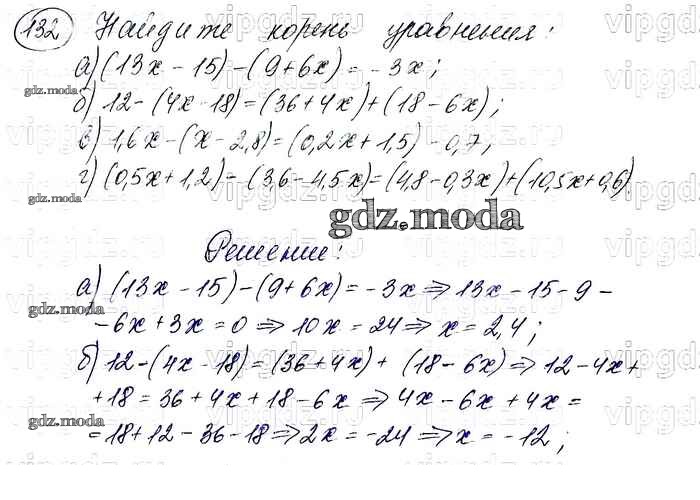 132 Найдите корень уравнения:
а) (13x - 15) - (9 + 6x) = - 3x;
gdz.moda
б) 12 - (4x - 18) = (36 + 4x) + (18 - 6x);
в) 1,6x - (x - 2,8) = (0,2x + 1,5) - 0,7;
г) (0,5x + 1,2) - (3,6 - 4,5x) = (4,8 - 0,3x) + (10,5x + 0,6)
gdz.moda
gdz.moda
Решение:
а) (13x - 15) - (9 + 6x) = - 3x ⇒ 13x - 15 - 9 -
gdz.moda
- 6x + 3x = 0 ⇒ 10x = 24 ⇒ x = 2,4;
б) 12 - (4x - 18) = (36 + 4x) + (18 - 6x) ⇒ 12 - 4x +
+ 18 = 36 + 4x + 18 - 6x ⇒ 4x - 6x + 4x =
gdz.moda
= 18 + 12 - 36 - 18 ⇒ 2x = - 24 ⇒ x = - 12;